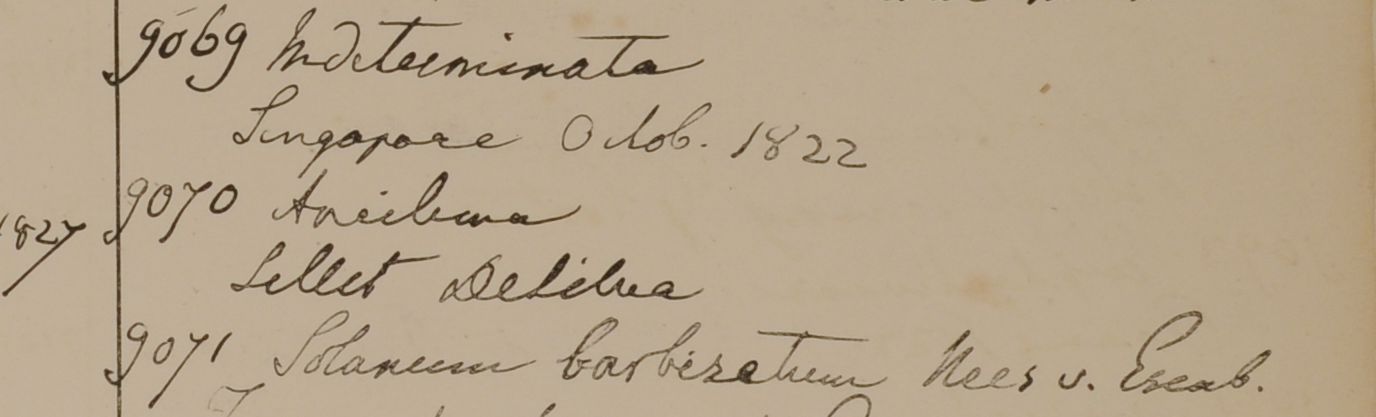 9069 Indeterminata
Singapore Octob. 1822
9070 Aneilema
1827
Sillet DeSilva
9071 Solanum barbisetum Nees v. Esenb.